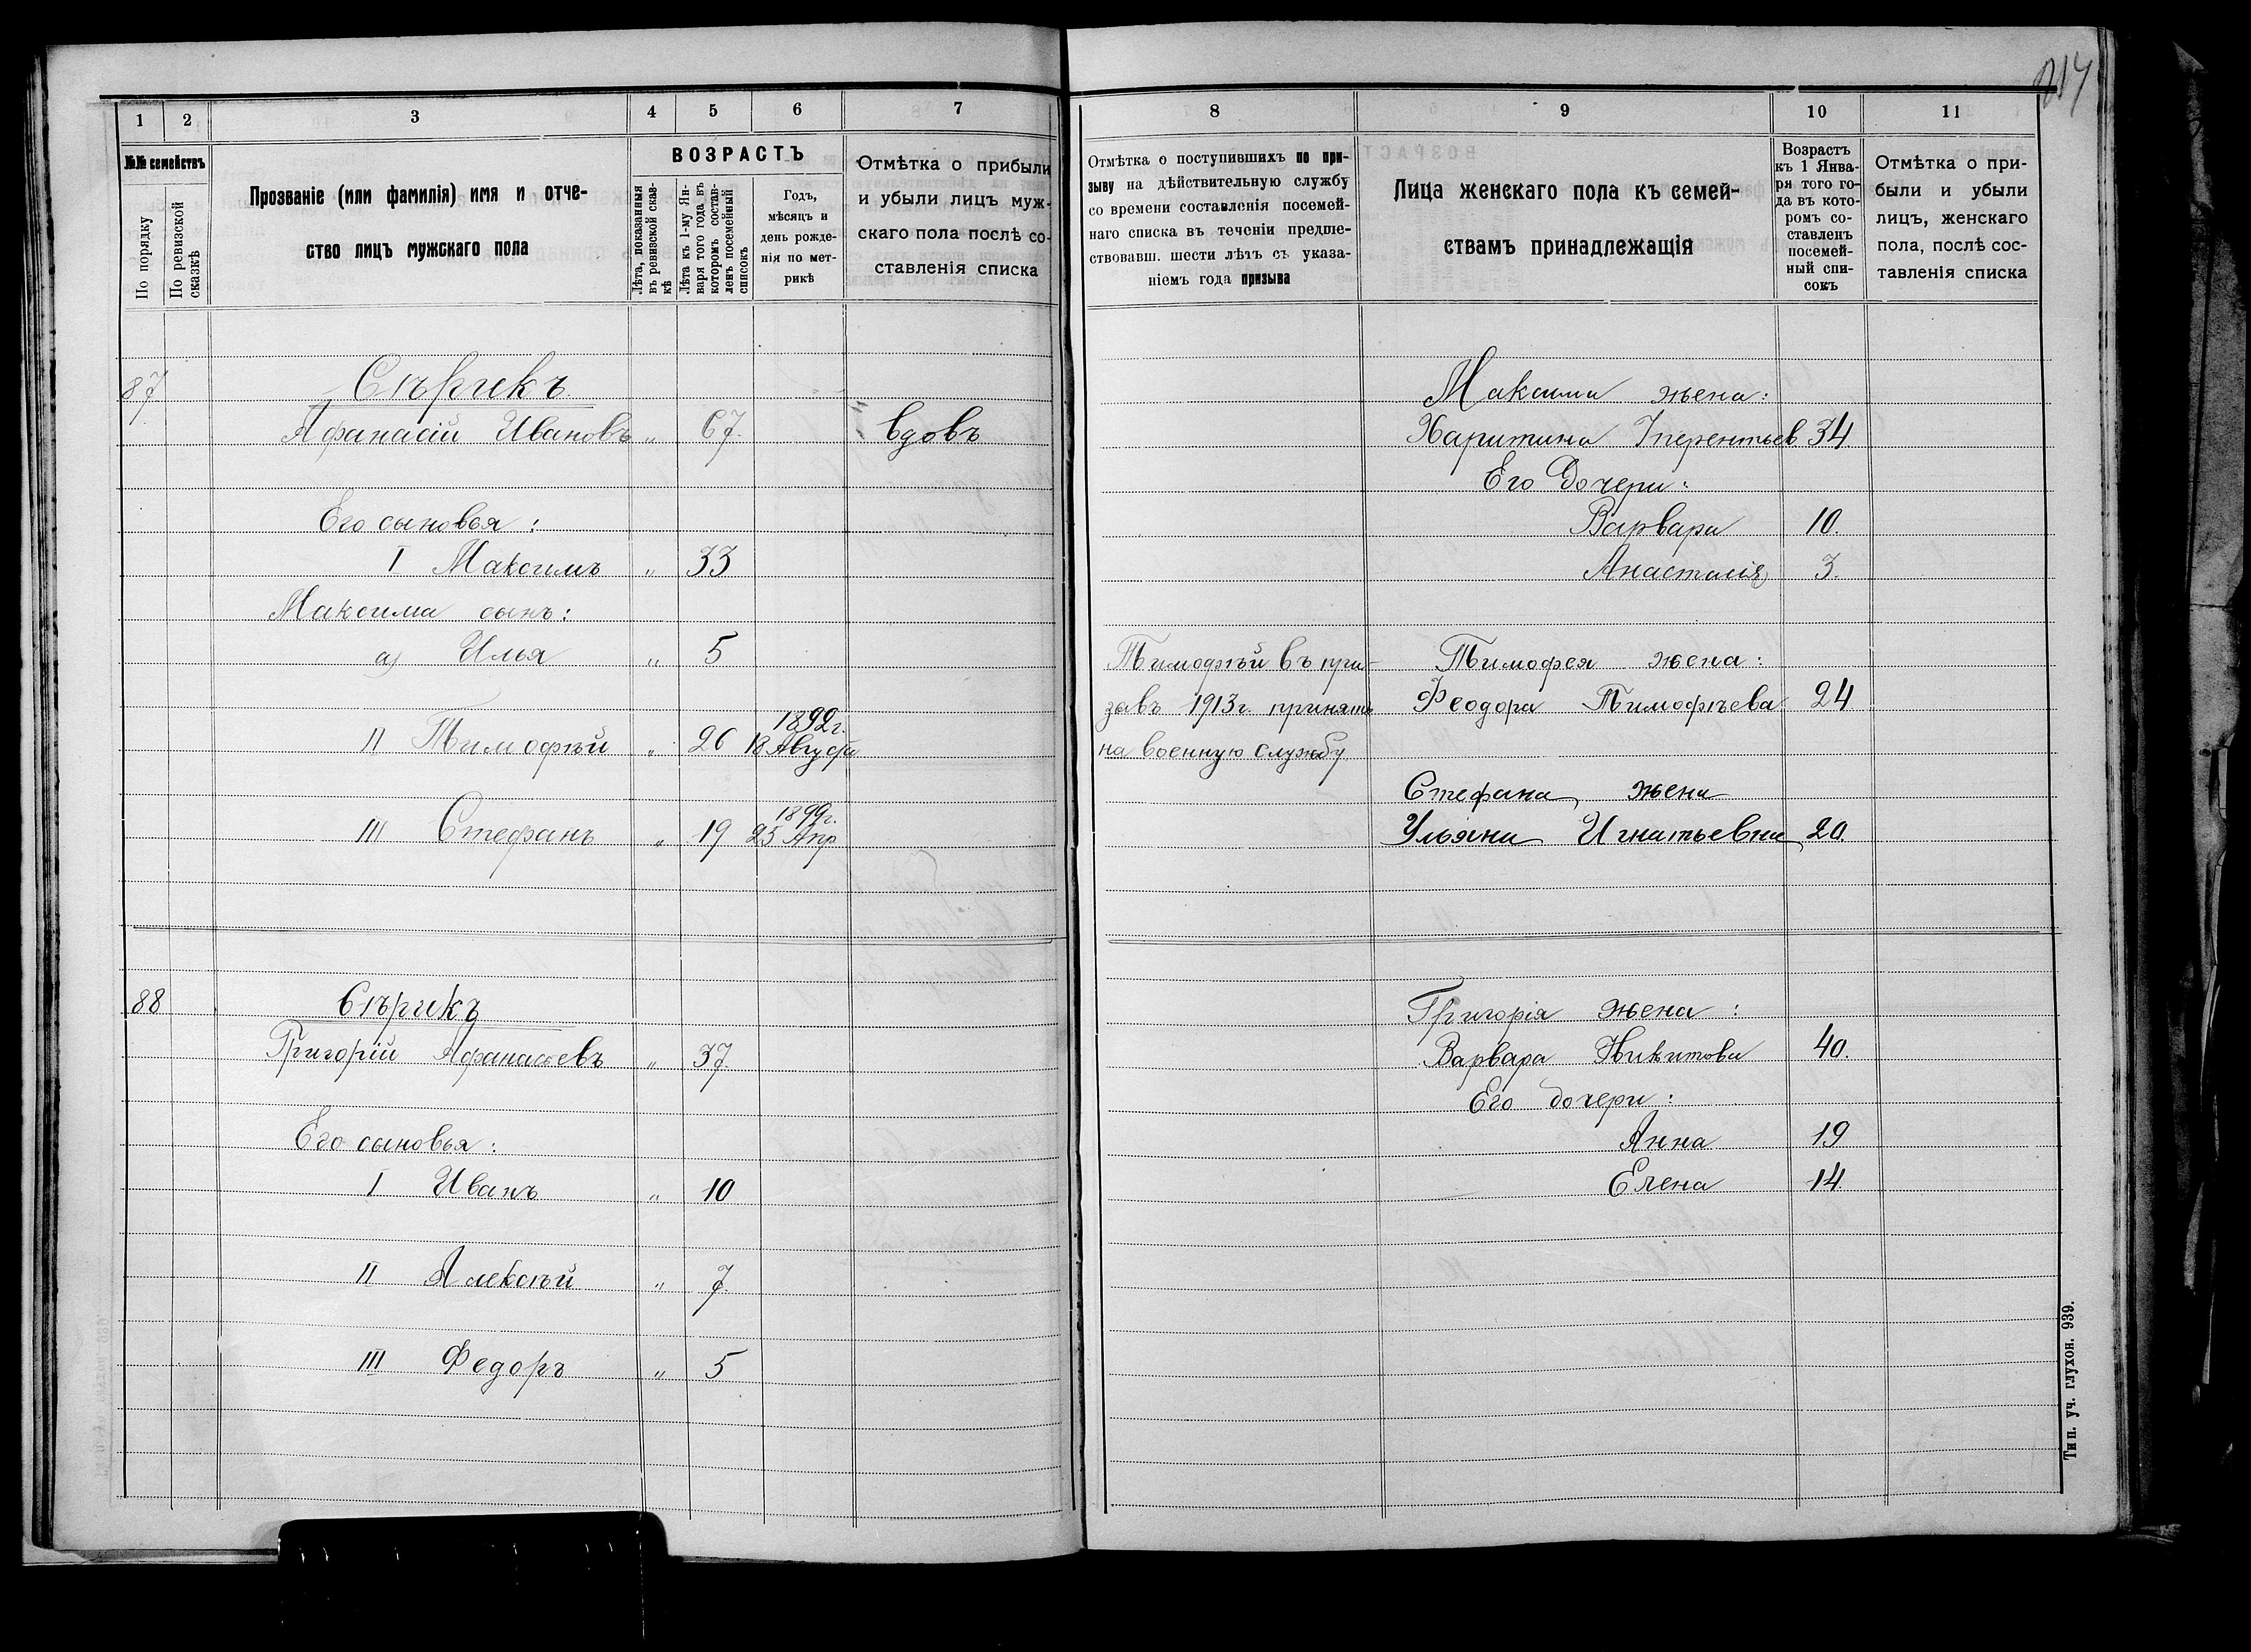 217
1 2 3 4 5 6 7
№№ семействъ
По порядку
По ревизской сказкѣ
Прозваніе (или фамилія) имя и отче-
ство лицъ мужскаго пола
ВОЗРАСТЪ
Лѣта, показанныя
въ ревизской сказ-
кѣ
Лѣта къ 1-му Ян-
варя того года въ
которомъ состав-
ленъ посемейный
списокъ
Годъ,
мѣсяцъ и
день рожде-
нія по мет-
рикѣ
Отмѣтка о прибыли
и убыли лицъ муж-
скаго пола послѣ со-
ставленія списка
87 Сѣрикъ
Афанасій Ивановъ „ 67. вдовъ
Его сыновья:
I Максимъ „ 33
Максима сынъ:
а) Илья „ 5
1892г.
II Тимофѣй „ 26 18 Августа
1899г.
III Стефанъ „ 19 25 Апр
88 Сѣрикъ
Григорій Афанасьевъ „ 37.
Его сыновья:
I Иванъ „ 10
II Алексѣй „ 7.
III Федоръ „ 5
8 9 10 11
Отмѣтка о поступившихъ по при-
зыву на дѣйствительную службу
со времени составленія посемей-
наго списка въ теченіи предше-
ствовавш. шести лѣтъ съ указа-
ніемъ года призыва
Лица женскаго пола къ семей-
ствамъ принадлежащія
Возрастъ
къ 1 Янва-
ря того го-
да въ кото-
ромъ со-
ставленъ
посемей-
ный спи-
сокъ
Отмѣтка о при-
были и убыли
лицъ, женскаго
пола, послѣ сос-
тавленія списка
Максима жена:
Харитина Терентьев 34
Его Дочери:
Варвара 10.
Анастасія 3.
Тимофѣй въ при- Тимофея жена:
зывъ 1913г. принятъ Феодора Тимофѣева 24
на военную службу.
Стефана жена
Ульяна Игнатьевна 20.
Григорія жена:
Варвара Никитова 40.
Его дочери:
Анна 19
Елена 14.
Тип. уч. глухон. 939.